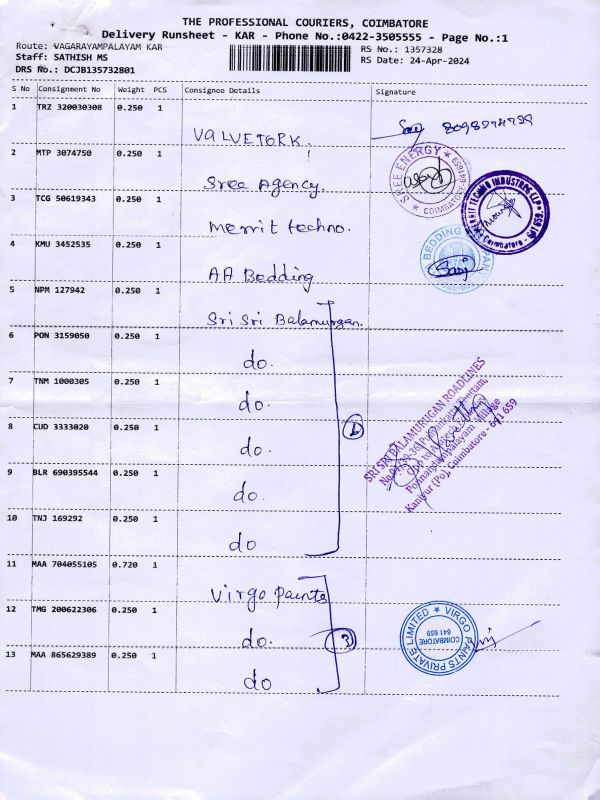 THE PROFESSIONAL COURIERS, COIMBATORE
Delivery Runsheet - KAR - Phone No.:0422-3505555 - Page No.:1
Route: VAGARAYAMPALAYAM KAR
RS No.: 1357328
Staff: SATHISH MS
RS Date: 24-Apr-2024
DRS No.: DCJB135732801
S No Consignment No Weight PCS Consignee Details Signature
1 TRZ 320030308 0.250 1
VALVETORK
2 MTP 3074750 0.250 1
Sree Agency.
SREE ENERGY
COIMBATORE
3 TCG 50619343 0.250 1
Merrit techno.
TECHNO INDUSTRIES LLP
Coimbatore - 641 659
4 KMU 3452535 0.250 1
AA Bedding
BEDDING
5 NPM 127942 0.250 1
Sri Sri Balamurgan.
6 PON 3159050 0.250 1
do.
7 TNM 1000305 0.250 1
do.
8 CUD 3333020 0.250 1
do.
9 BLR 690395544 0.250 1
do.
10 TNJ 169292 0.250 1
do
6
SRI SRI BALAMURUGAN ROADLINES
Kaniyur (Po), Coimbatore - 641 659
11 MAA 704055105 0.720 1
Virgo Paints
12 TMG 200622306 0.250 1
do.
3
13 MAA 865629389 0.250 1
do
VIRGO PAINTS PRIVATE LIMITED
COIMBATORE
641 659